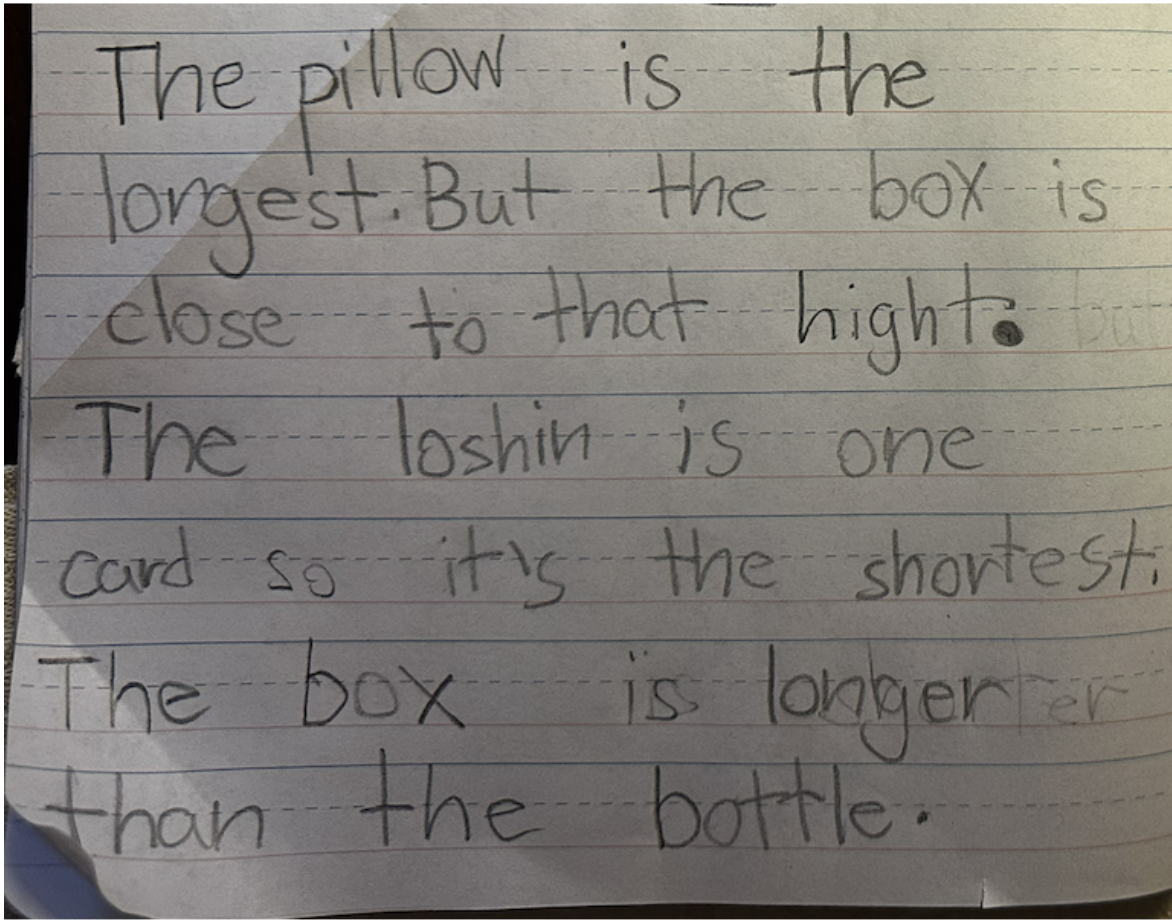 The pillow is the
longest. But the box is
close to that hight.
The loshin is one
card so it's the shortest.
The box is longer
than the bottle.